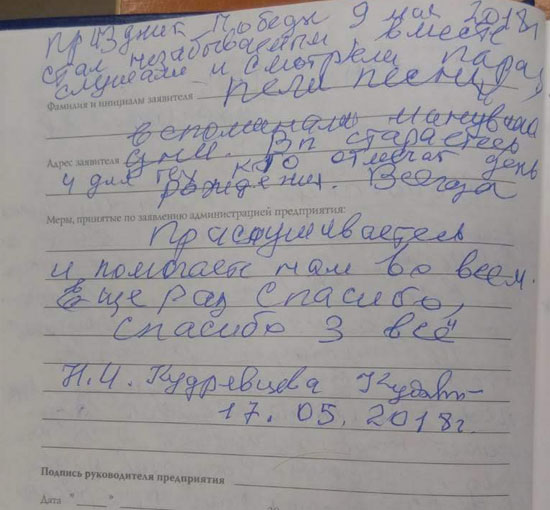 праздник Победы 9 мая 2018г
стал незабываемым вместе
слушали и смотрели парад,
Фамилия и инициалы заявителя пели песни,
вспоминали минувшие
Адрес заявителя дни. Вы стараетесь
и для тех кто отмечат день
рождения. Всегда
Меры, принятые по заявлению администрацией предприятия:
прислушиваетесь
и помогаете нам во всем.
Еще раз спасибо,
спасибо з всё
Н.И. Кудрявцева
17.05.2018г.
Подпись руководителя предприятия
Дата " "